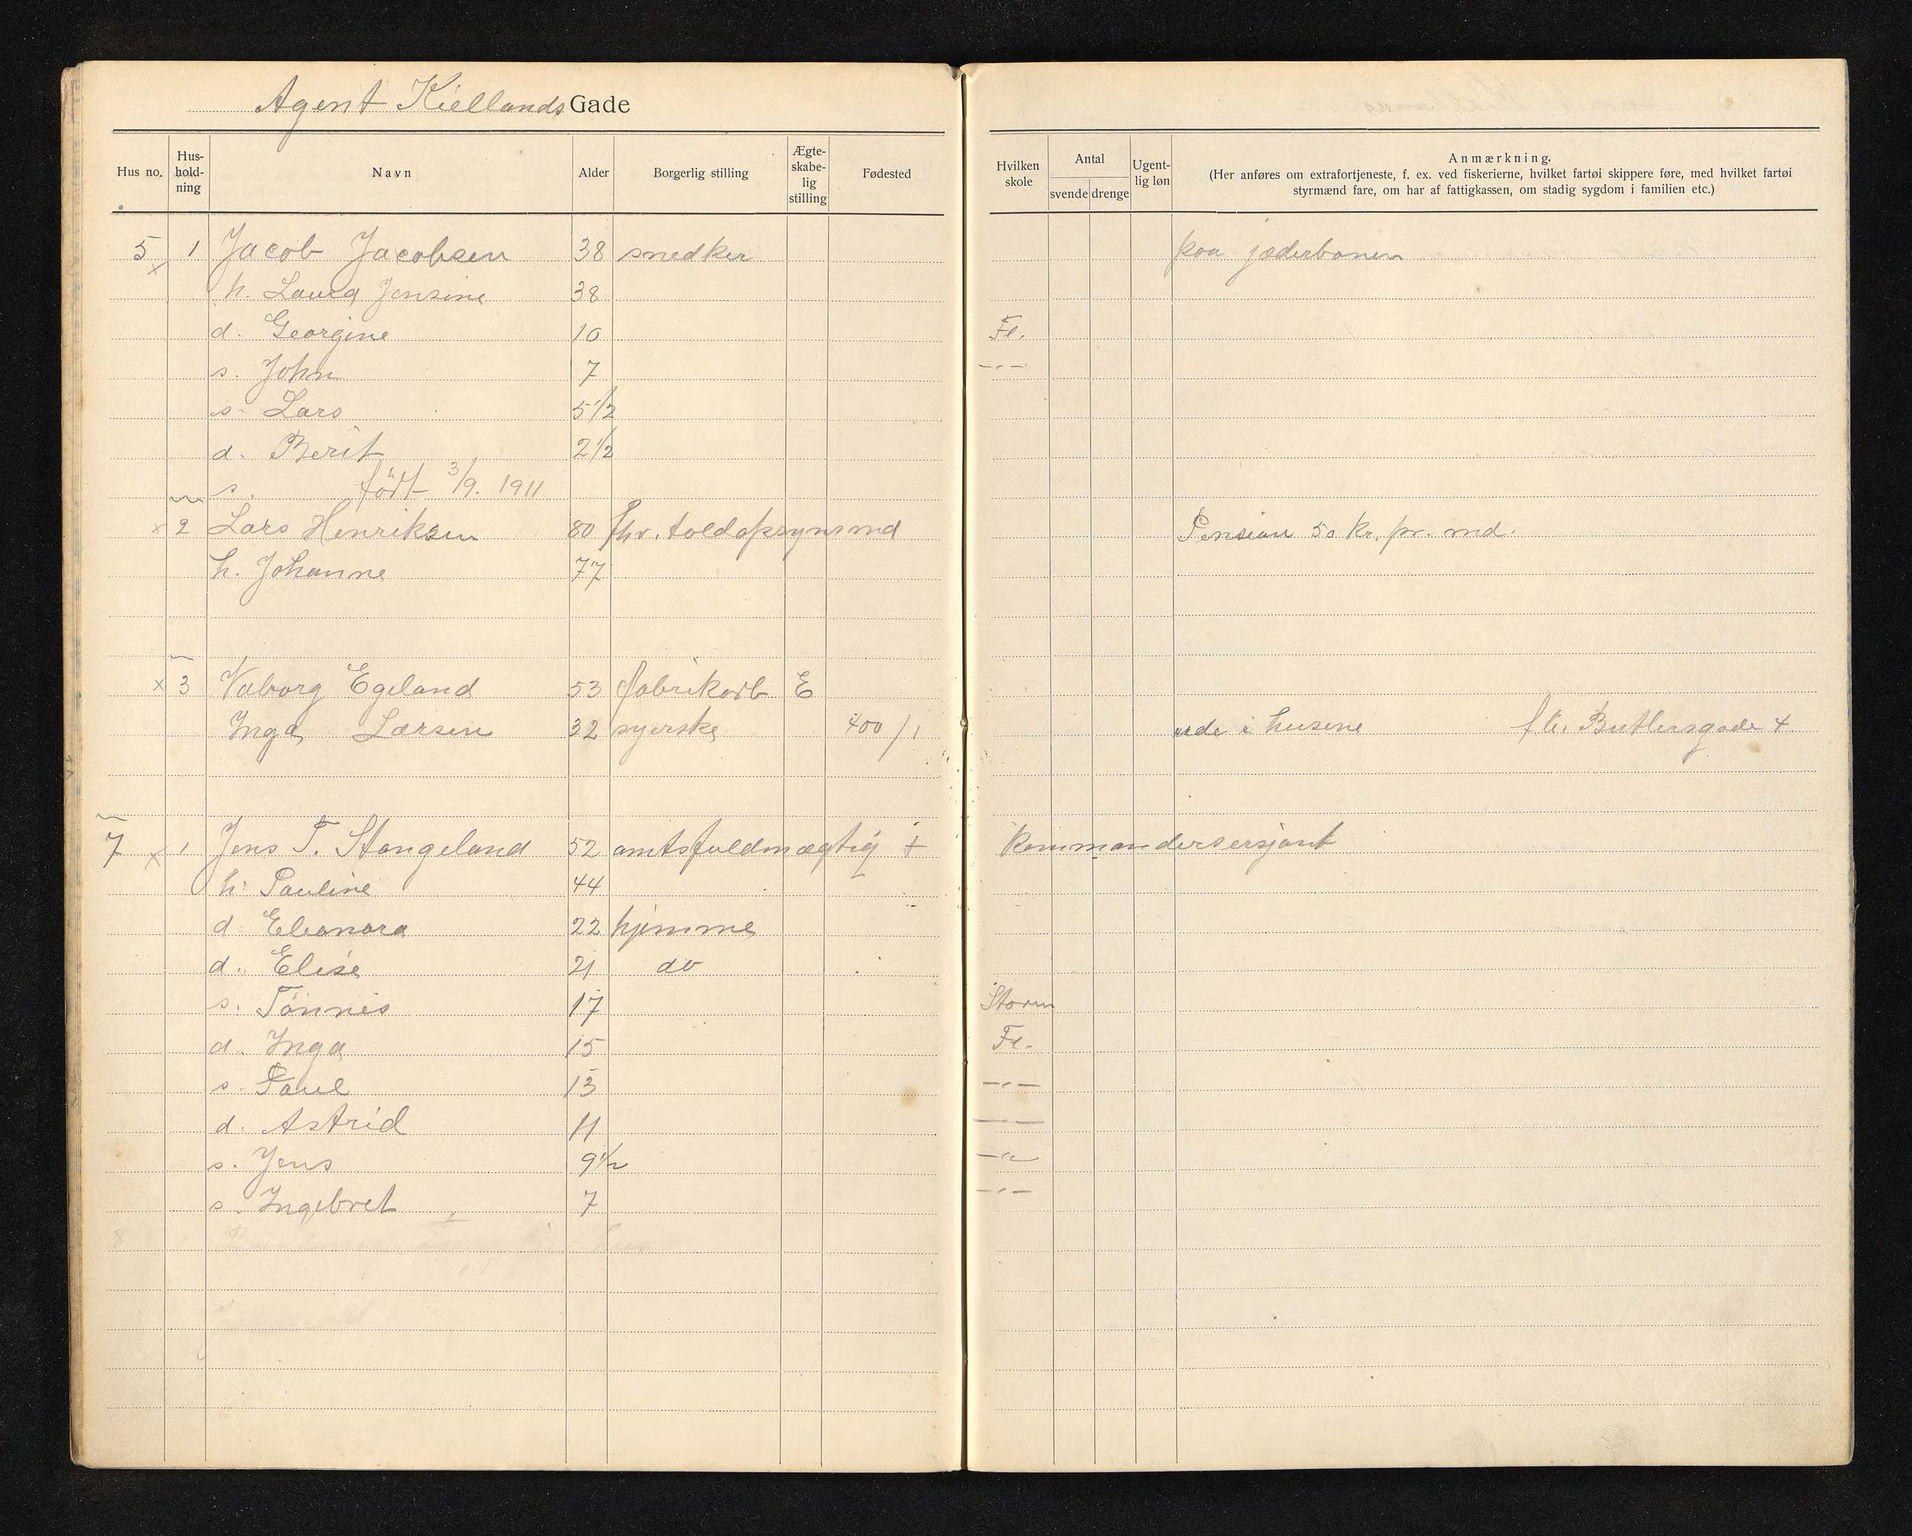 Agent Kiellands Gade
Hus no. Hus-hold-ning Navn Alder Borgerlig stilling Ægte-skabe-lig stilling Fødested Hvilken skole Antal svende drenge Ugent-lig løn Anmærkning.
(Her anføres om extrafortjeneste, f. ex. ved fiskerierne, hvilket fartøi skippere føre, med hvilket fartøi
styrmænd fare, om har af fattigkassen, om stadig sygdom i familien etc.)
5 x 1 Jacob Jacobsen 38 snedker paa jæderbanen
h. Laura Jensine 38
d. Georgine 10 Fl.
s. John 7 -"-
s. Lars 5 1/2
d. Berit 2 1/2
s. født 3/9. 1911
x 2 Lars Henriksen 80 fhv. toldopsynsmd Pension 50 kr. pr. md.
h. Johanne 77
x 3 Valborg Egeland 53 fabrikarb E
Inga Larsen 32 syerske 400/1 ude i husene fl. Butlersgade 4
7 x 1 Jens T. Stangeland 52 amtsfuldmægtig + kommandersersjant
h. Pauline 44
d. Eleonora 22 hjemme
d. Elise 21 do
s. Tönnes 17 Storm
d. Inga 15 Fl.
s. Paul 13 -"-
d. Astrid 11 -"-
s. Jens 9 1/2 -"-
s. Ingebret 7 -"-
8